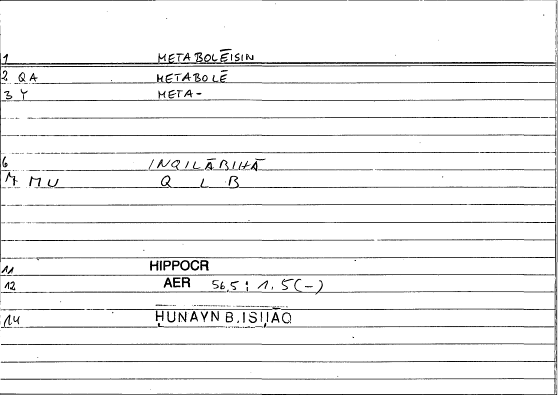 1 METABOLĒISIN
2 QA METABOLĒ
3 Y META-
6 INQILĀBIHĀ
7 MU Q L B
11 HIPPOCR
12 AER 56,5 : 1.5(-)
14 ḤUNAYN B.ISḤĀQ